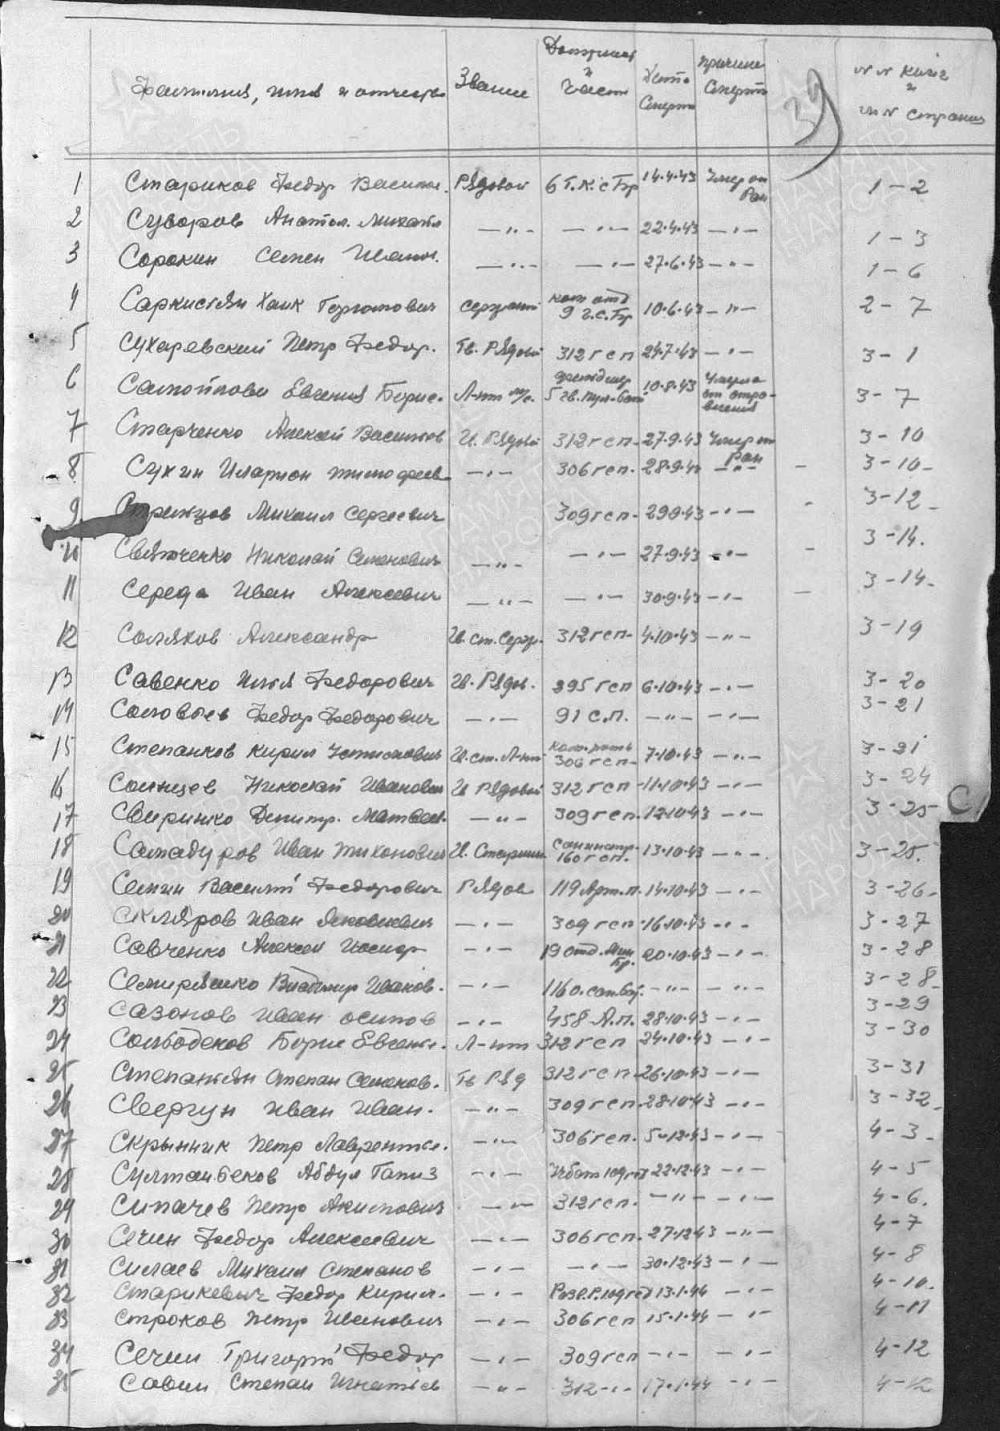 Фамилия, имя и отчество Звание Должност и Част Дата Смерти Причина Смерти 39 №№ книг и №№ страниц
1 Стариков Федор Васил. Рядовой 6 Т.К. С Бр 14.4.43 Умер от Ран 1-2
2 Суворов Анатол. Михайл -"- -"- 22.4.43 -"- 1-3
3 Сорокин Семен Иван. -"- -"- 27.6.43 -"- 1-6
4 Саркисян Хаик сержант ком отд 9 г.с.Бр 10.6.43 -"- 2-7
5 Сухаревский Петр Федор. Гв. Рядовой 312 гсп 24.7.43 -"- 3-1
6 Самойлова Евгения Борис. Л-нт м/с. 5 гв. 10.8.43 Умерла от отравления 3-7
7 Старченко Алексей Васильев Гв. Рядовой 312 гсп. 27.9.43 Умер от Ран 3-10
8 Сукин Иларион Тимофеев -"- 306 гсп. 28.9.43 -"- 3-10
9 Михаил Сергеевич 309 гсп. 29.9.43 -"- 3-12
10 Николай Семенович -"- -"- 27.9.43 -"- 3-14.
11 Середа Иван Алексеевич -"- -"- 30.9.43 -"- 3-14.
12 Соляков Александр Гв. ст. Серж. 312 гсп. 4.10.43 -"- 3-19
13 Савенко Илья Федорович Гв. Рядов. 295 гсп 6.10.43 -"- 3-20
14 Соловьев Федор Федорович -"- 91 с.п. -"- -"- 3-21
15 Степанков Кирил Гв. ст. Л-нт ком. роты 306 гсп. 7.10.43 -"- 3-21
16 Солнцев Николай Иванович Гв Рядовой 312 гсп 11.10.43 -"- 3-24
17 Свиринко Дмитр. Матвеев. -"- 309 гсп. 12.10.43 -"- 3-25
18 Самадуров Иван Тихонович Гв. Старшин Санинстр. 160 гсп. 13.10.43 -"- 3-25.
19 Семин Василий Федорович Рядов 119 Арт.п. 14.10.43 -"- 3-26.
20 Скляров Иван Яковлевич -"- 309 гсп. 16.10.43 -"- 3-27
21 Савченко Алексей Иосиф -"- 19 отд. Мин Бр. 20.10.43 -"- 3-28
22 Владимир Иванов. -"- 116 о. сап. -"- -"- 3-28.
23 Сазонов Иван Осипов -"- 458 А.п. 28.10.43 -"- 3-29
24 Борис Евгень. Л-нт 312 гсп 24.10.43 -"- 3-30
25 Степанян Степан Семенов. Гв Ряд 312 гсп. 26.10.43 -"- 3-31
26 Свергун Иван Иван. -"- 309 гсп. 28.10.43 -"- 3-32.
27 Скрынник Петр Лаврентье. -"- 306 гсп. 5.12.43 -"- 4-3.
28 Султанбеков Абдул Гапиз -"- 22.12.43 -"- 4-5
29 Сипачев Петр Акимович -"- 312 гсп. -"- -"- 4-6.
30 Сечин Федор Алексеевич -"- 306 гсп. 27.12.43 -"- 4-7
31 Силаев Михаил Степанов -"- -"- 30.12.43 -"- 4-8
32 Старикевич Федор Кирил. -"- 13.1.44 -"- 4-10.
33 Строков Петр Иванович -"- 306 гсп 15.1.44 -"- 4-11
34 Сечин Григорий Федор -"- 309 гсп -"- -"- 4-12
35 Савин Степан Игнатьев -"- 312 -"- 17.1.44 -"- 4-12
С
ПАМЯТЬ НАРОДА